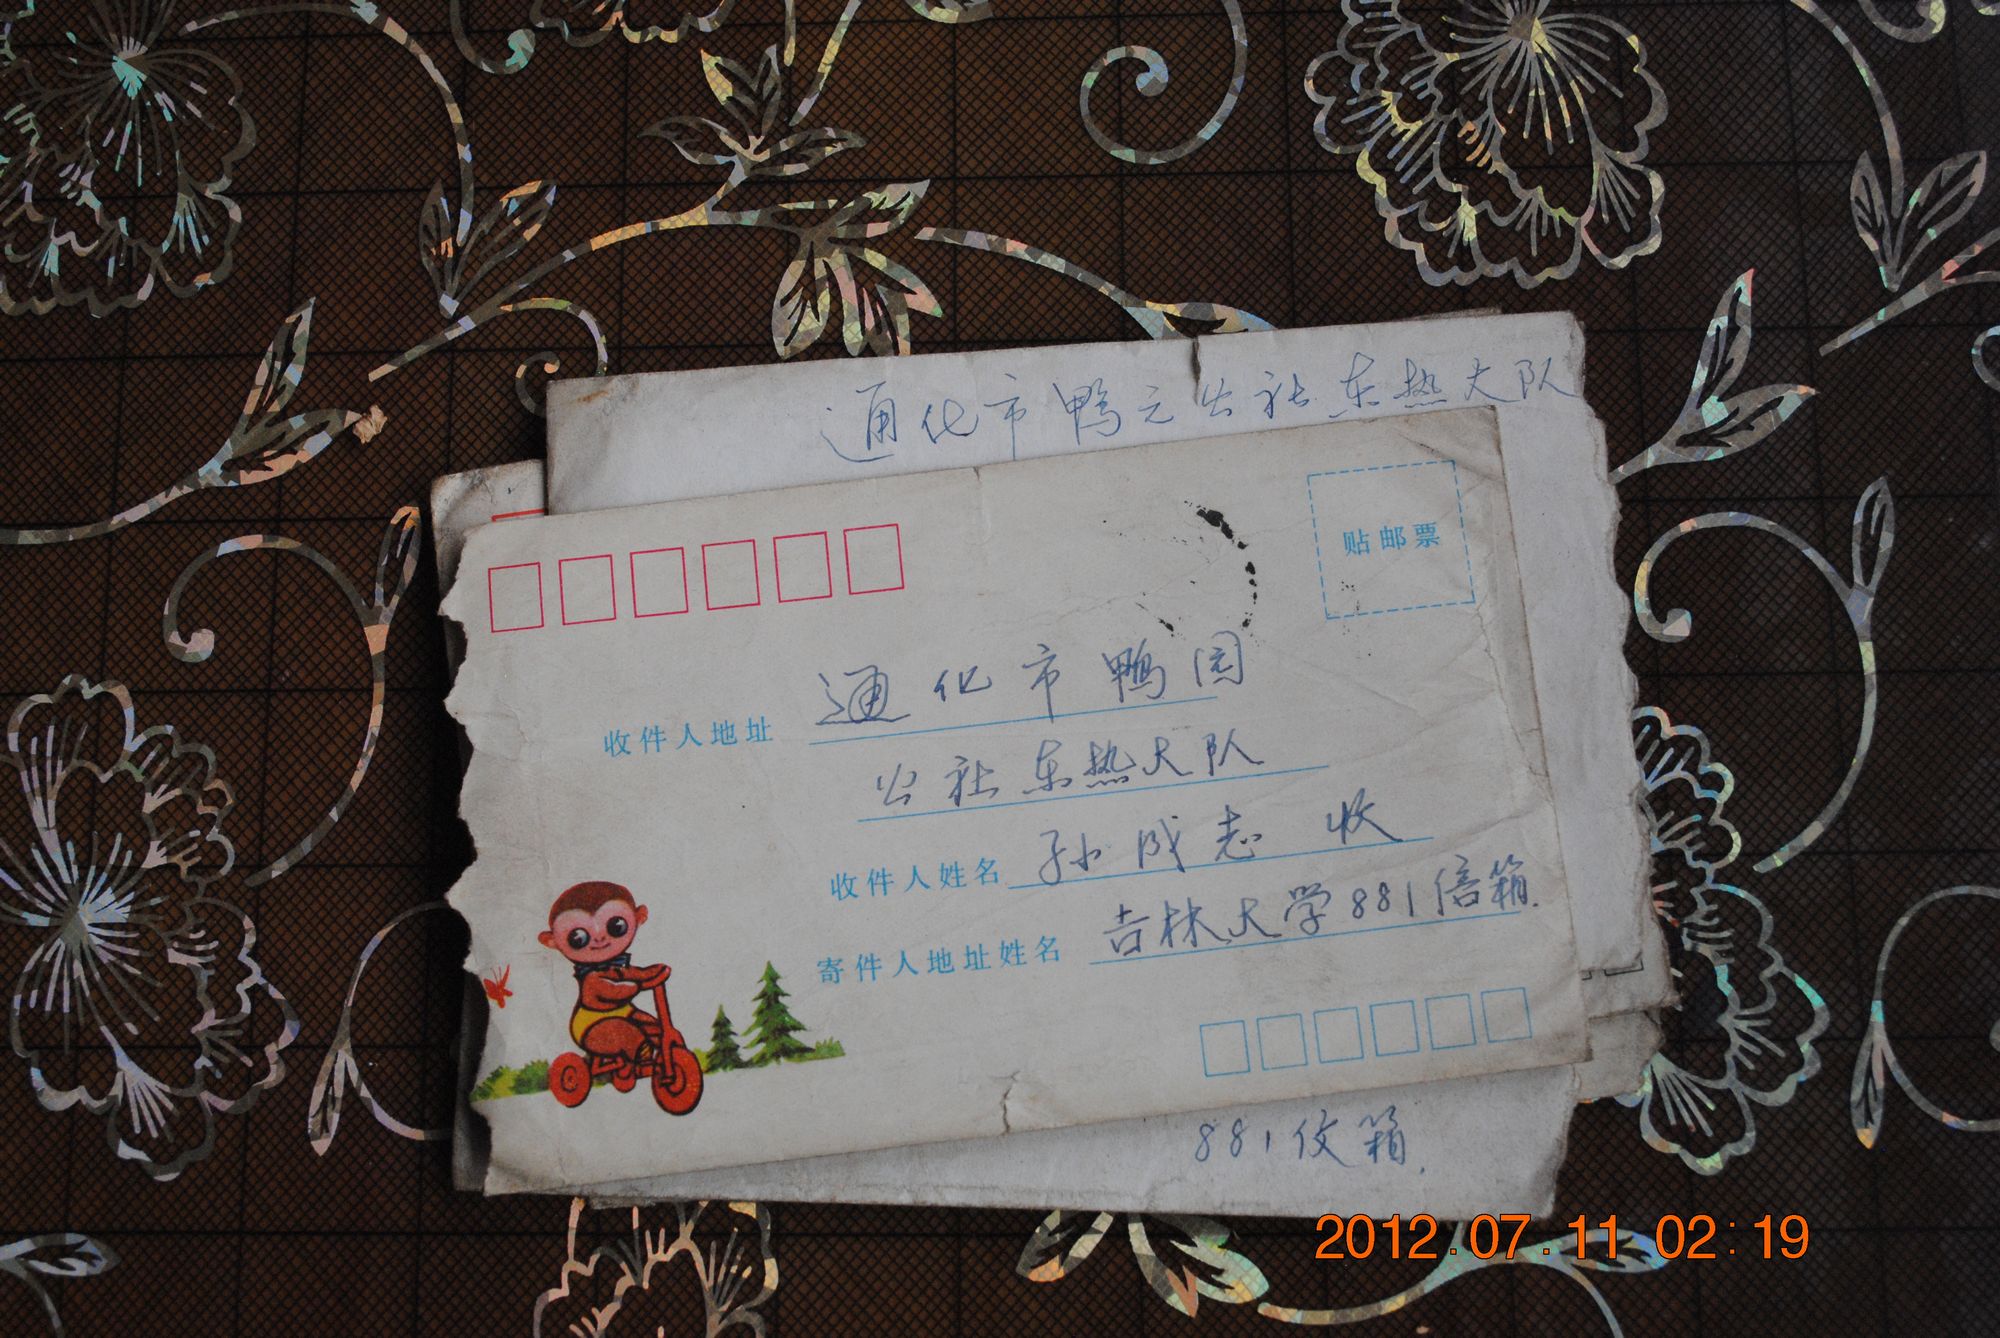 通化市鸭元公社东热大队
贴邮票
收件人地址 通化市鸭园
公社东热大队
收件人姓名 孙成志 收
寄件人地址姓名 吉林大学881信箱.
881信箱.
2012.07.11 02:19